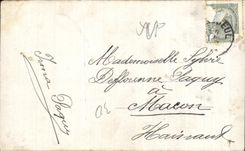 Mademoiselle Sylvie
Defforenne Paquy
à
Macon
Hainaut
Irma Paquy